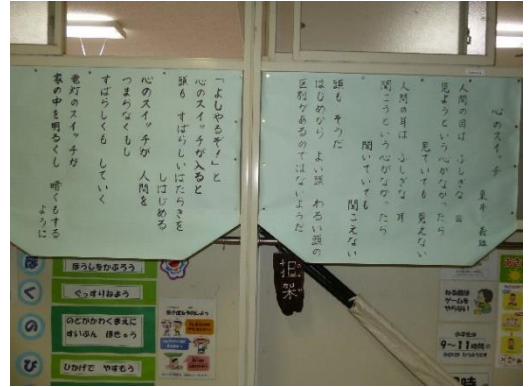 心のスイッチ
東井 義雄
人間の目は ふしぎな 目
見ようという心がなかったら
見ていても 見えない
人間の耳は ふしぎな 耳
聞こうという心がなかったら
聞いていても 聞こえない
頭も そうだ
はじめから よい頭 わるい頭の
区別があるのではないようだ
「よしやるぞ!」と
心のスイッチが入ると
頭も すばらしいはたらきを
しはじめる
心のスイッチが 人間を
つまらなくもし
すばらしくも していく
電灯のスイッチが
家の中を明るくし 暗くもする
ように
ぼうしをかぶろう
ぐっすりねよう
のどがかわくまえに
すいぶん ほきゅう
ひかげで やすもう
ぼ
く
の
び
担架
ねる前は
ゲームを
やらない
9~11時間